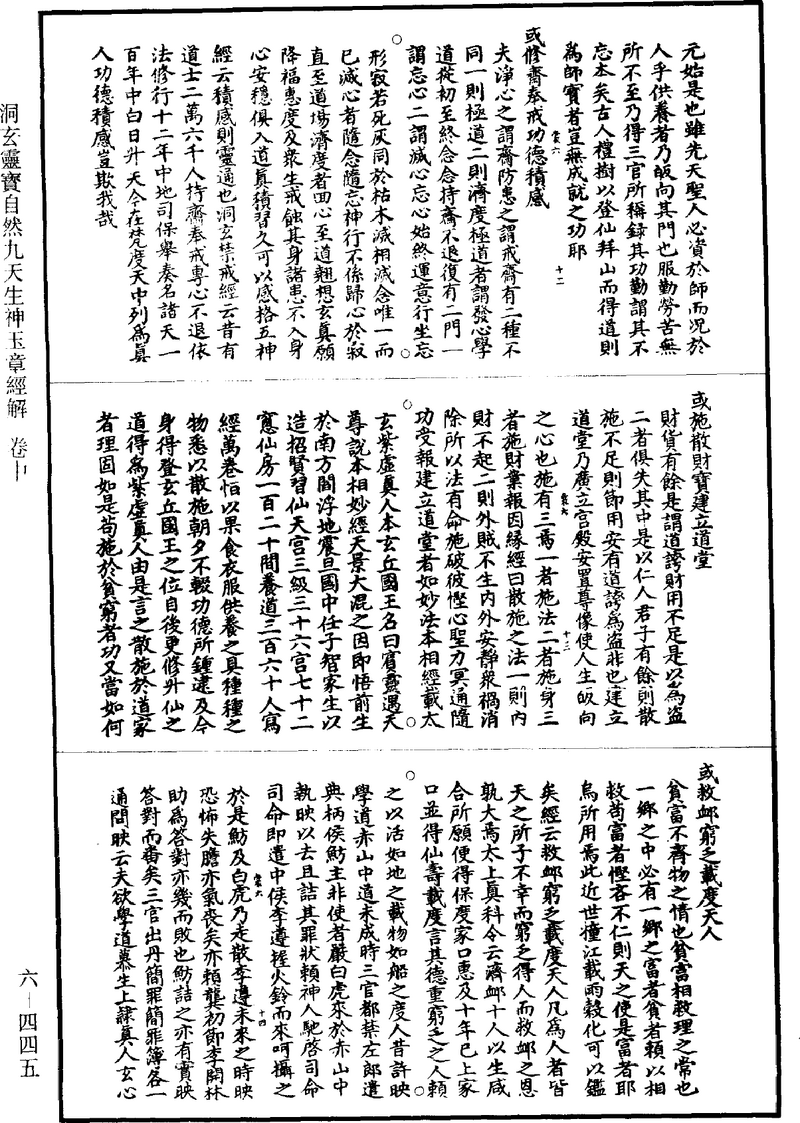 元始是也雖先天聖人必資於師而況於
人乎供養者乃皈向其門也服勤勞苦無
所不至乃得三官所稱錄其功勤謂其不
忘本矣古人禮樹以登仙拜山而得道則
為師寶者豈無成就之功耶
十二
或修齋奉戒功德積感
夫淨心之謂齋防患之謂戒齋有二種不
同一則極道二則濟度極道者謂發心學
道從初至終念念持齋不退復有二門一
謂忘心二謂滅心忘心始終運意行坐忘
形寂若死灰同於枯木滅相滅念唯一而
已滅心者隨念隨忘神行不係歸心於寂
直至道場濟度者迴心至道翹想玄真願
降福惠度及眾生戒飭其身諸患不入身
心安穩俱入道真積習久可以感格五神
經云積感則靈通也洞玄禁戒經云昔有
道士二萬六千人持齋奉戒專心不退依
法修行十二年中地司保舉奏名諸天一
百年中白日升天今在梵度天中列為真
人功德積感豈欺我哉
或施散財寶建立道堂
財貨有餘是謂道誇財用不足是以為盜
二者俱失其中是以仁人君子有餘則散
施不足則節用安有道誇為盜非也建立
道堂乃廣立宮殿安置尊像使人生皈向
十三
之心也施有三焉一者施法二者施身三
者施財業報因緣經曰散施之法一則內
財不起二則外賊不生內外安靜眾禍消
除所以法有命施破彼慳心聖力冥通隨
功受報建立道堂者如妙法本相經載太
玄紫虛真人本玄丘國王名曰賓靈遇天
尊說本相妙經天景大混之因即悟前生
於南方閻浮地震旦國中任子智家生以
造招賢習仙天宮三級三十六宮七十二
窻仙房一百二十間養道三百六十人寫
經萬卷恒以果食衣服供養之具種種之
物悉以散施朝夕不輟功德所鍾逮及今
身得登玄丘國王之位自後更修升仙之
道得為紫虛真人由是言之散施於道家
者理固如是苟施於貧窮者功又當如何
或救卹窮乏載度天人
貧富不齊物之情也貧富相救理之常也
一鄉之中必有一鄉之富者貧者賴以相
救苟富者慳吝不仁則天之使是富者耶
烏所用焉此近世憧江載雨穀化可以鑑
矣經云救卹窮乏載度天人凡為人者皆
天之所子不幸而窮乏得人而救卹之恩
孰大焉太上真科令云濟卹十人以生咸
合所願便得保度家口惠及十年已上家
口並得仙壽載度言其德重窮乏之人賴
之以活如地之載物如船之度人昔許映
學道赤山中道未成時三官都禁左郎遣
典柄侯魴主非使者嚴白虎來於赤山中
執映以去且詰其罪狀賴神人馳啓司命
司命即遣中侯李遵握火鈴而來呵攝之
十四
於是魴及白虎乃走散李遵未來之時映
恐怖失膽亦氣喪矣亦賴龔初節李開林
助為答對亦幾而敗也魴詰之亦有實映
答對而審矣三官出丹簡罪簡罪簿各一
通問映云夫欲學道慕生上隸真人玄心
洞玄靈寶自然九天生神玉章經解 卷中
六－四四五